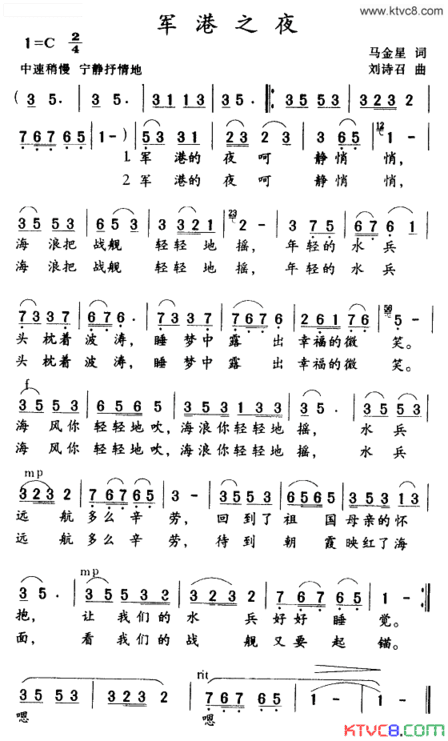 www.ktvc8.com
军港之夜
1=C 2/4
马金星 词
中速稍慢 宁静抒情地
刘诗召 曲
( 3 5 · | 3 5 · |: 3 5 5 3 |
7 6 7 6 5 | 1 - ) | 5 3 3 1 | 2 3 2 3 | 3 6 5 | 1 - |
1 军港的 夜呵 静悄悄,
2 军港的 夜呵 静悄悄,
3 5 5 3 | 6 5 3 | 3 3 2 1 | 2 - | 3 7 5 | 6 7 6 1 |
海浪把战舰 轻轻地摇, 年轻的水兵
海浪把战舰 轻轻地摇, 年轻的水兵
7 3 3 7 | 6 7 6 · | 7 3 3 7 | 6 7 6 7 | 2 6 1 7 6 | 5 - |
头枕着波涛, 睡梦中露出幸福的微笑。
头枕着波涛, 睡梦中露出幸福的微笑。
f
3 5 5 3 | 6 5 6 5 | 3 5 3 1 3 3 | 3 5 · | 3 5 5 3 |
海风你轻轻地吹, 海浪你轻轻地摇, 水兵
海风你轻轻地吹, 海浪你轻轻地摇, 水兵
mp
3 2 3 2 | 7 6 7 6 5 | 3 - | 3 5 5 3 | 6 5 6 5 | 3 5 5 1 3 |
远航多么辛劳, 回到了祖国母亲的怀
远航多么辛劳, 待到朝霞映红了海
mp
3 5 · | 3 5 5 5 3 | 2 3 5 3 2 | 7 6 7 6 5 | 1 - :|
抱, 让我们的水兵好好睡觉。
面, 看我们的战舰又要起锚。
rit
3 5 5 3 | 3 5 5 3 | 7 6 7 6 5 | 1 - | 1 - ‖
嗯 嗯
KTVC8.COM